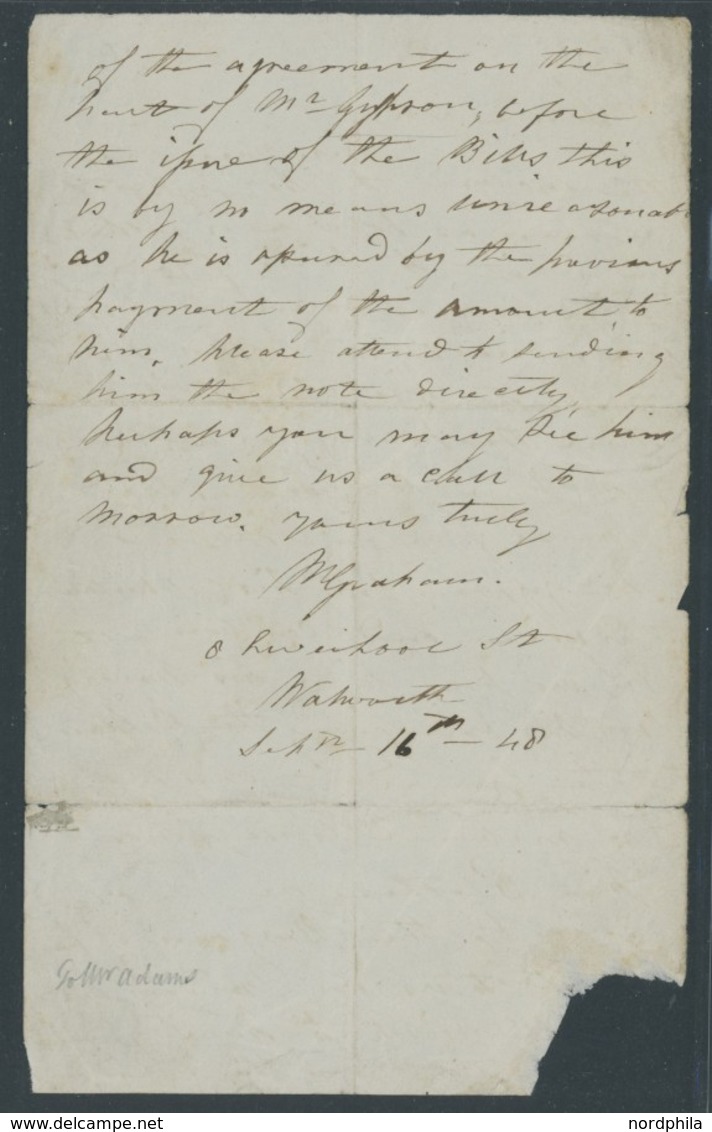 of the agreement on the
part of Mr before
the issue of the Bills this
is by no means unreasonab
as he is by the previous
payment of the amount to
him, please attend to sending
him the note directly,
perhaps you may see him
and give us a call to
morrow. yours truly
M Graham.
8 St
Walworth
Sepr 16th 48
To Mr Adams
nordphila